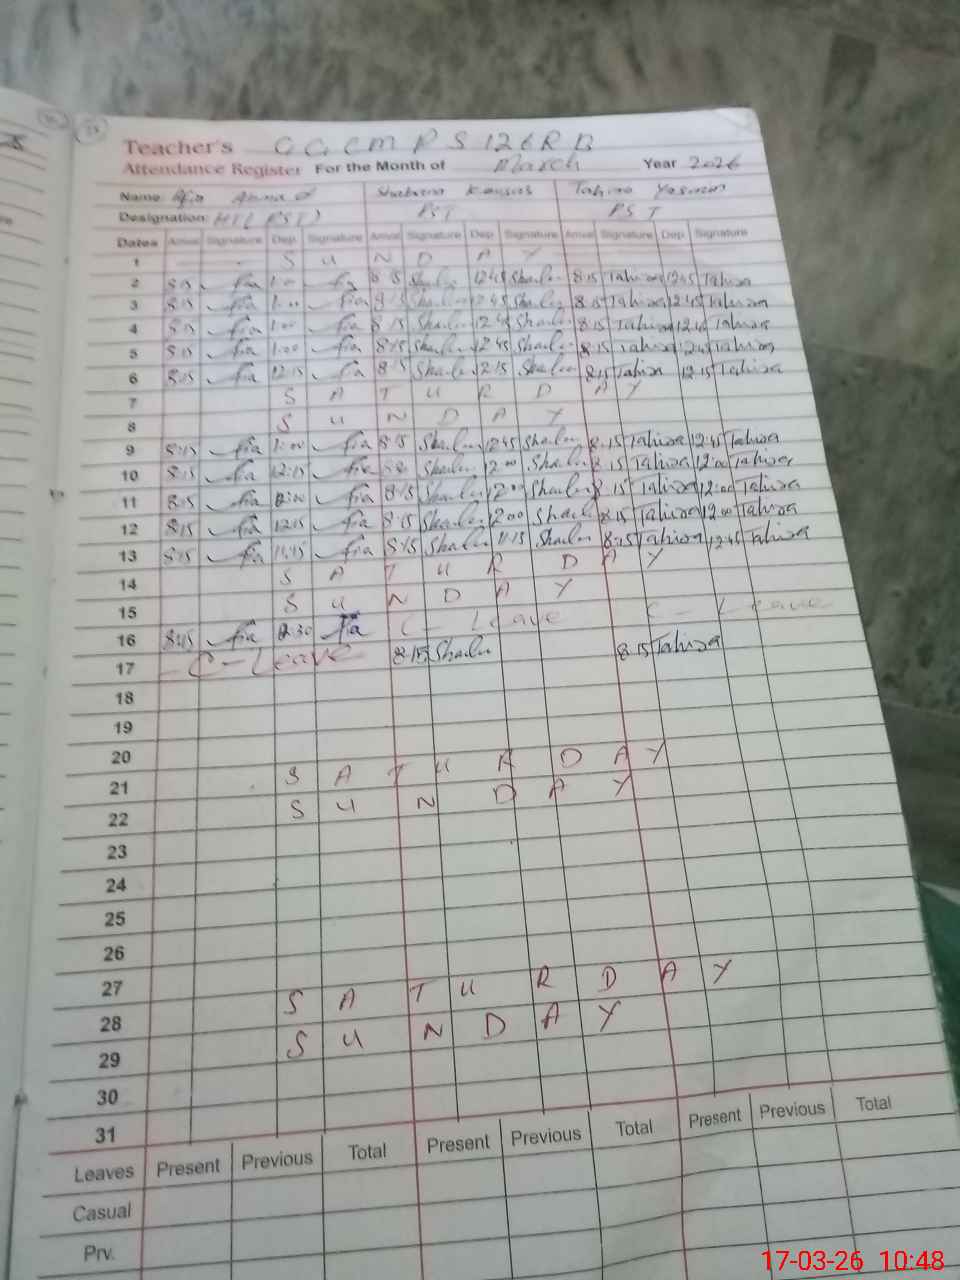 Teacher's G G C M P S 126 R B
Attendance Register For the Month of March Year 2026
Name Shabana Kousar Tahira Yasmin
Designation: PST PST
Dates Arrival Signature Dep. Signature Arrival Signature Dep. Signature Arrival Signature Dep. Signature
1 S U N D A Y
2 8:15 1:00 8:15 12:45 8:15 Tahira 12:45 Tahira
3 8:15 1:00 8:15 12:45 8:15 Tahira 12:45 Tahira
4 8:15 1:00 8:15 12:45 8:15 Tahira 12:45 Tahira
5 8:15 1:00 8:15 12:45 8:15 Tahira 12:45 Tahira
6 8:15 12:15 8:15 12:15 8:15 Tahira 12:15 Tahira
7 S A T U R D A Y
8 S U N D A Y
9 8:15 1:00 8:15 12:45 8:15 Tahira 12:45 Tahira
10 8:15 12:15 12:00 8:15 Tahira 12:00 Tahira
11 8:15 12:00 8:15 12:00 8:15 Tahira 12:00 Tahira
12 8:15 12:15 8:15 12:00 8:15 Tahira 12:00 Tahira
13 8:15 11:15 8:15 11:15 8:15 Tahira 12:45 Tahira
14 S A T U R D A Y
15 S U N D A Y
16 8:15 12:30 C - Leave C - Leave
17 - C - Leave 8:15 8:15 Tahira
18
19
20
21 S A T U R D A Y
22 S U N D A Y
23
24
25
26
27
28 S A T U R D A Y
29 S U N D A Y
30
31
Leaves Present Previous Total Present Previous Total Present Previous Total
Casual
Prv.
17-03-26 10:48